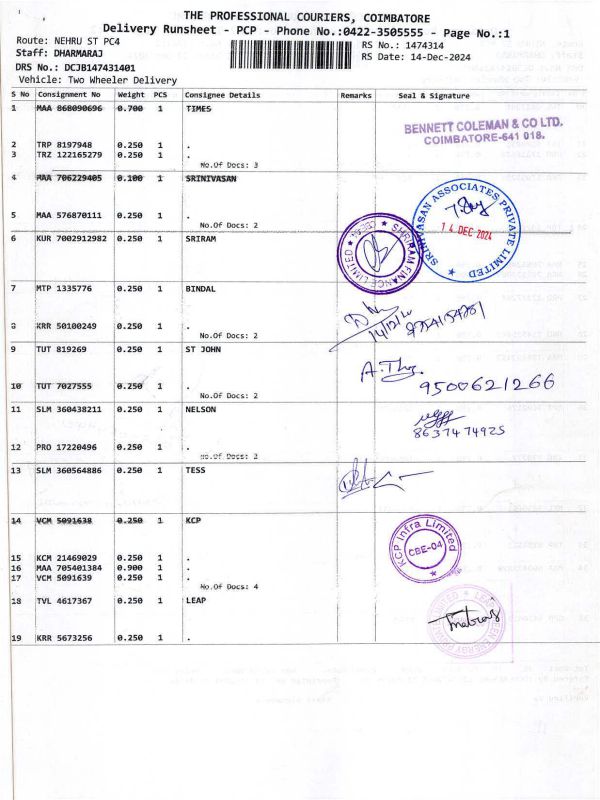 THE PROFESSIONAL COURIERS, COIMBATORE
Delivery Runsheet - PCP - Phone No.:0422-3505555 - Page No.:1
Route: NEHRU ST PC4
RS No.: 1474314
Staff: DHARMARAJ
RS Date: 14-Dec-2024
DRS No.: DCJB147431401
Vehicle: Two Wheeler Delivery
S No Consignment No Weight PCS Consignee Details Remarks Seal & Signature
1 MAA 868090696 0.700 1 TIMES
BENNETT COLEMAN & CO LTD.
COIMBATORE-641 018.
2 TRP 8197948 0.250 1 .
3 TRZ 122165279 0.250 1 .
No.Of Docs: 3
4 MAA 706229405 0.100 1 SRINIVASAN
SRINIVASAN ASSOCIATES PRIVATE LIMITED
14 DEC 2024
5 MAA 576870111 0.250 1 .
No.Of Docs: 2
6 KUR 7002912982 0.250 1 SRIRAM
SHRIRAM FINANCE LIMITED
7 MTP 1335776 0.250 1 BINDAL
8 KRR 50100249 0.250 1 .
No.Of Docs: 2
9 TUT 819269 0.250 1 ST JOHN
9500621266
10 TUT 7027555 0.250 1 .
No.Of Docs: 2
11 SLM 360438211 0.250 1 NELSON
8637474925
12 PRO 17220496 0.250 1 .
No.Of Docs: 2
13 SLM 360564886 0.250 1 TESS
14 VCM 5091638 0.250 1 KCP
KCP Infra Limited
CBE-04
15 KCM 21469029 0.250 1 .
16 MAA 705401384 0.900 1 .
17 VCM 5091639 0.250 1 .
No.Of Docs: 4
18 TVL 4617367 0.250 1 LEAP
19 KRR 5673256 0.250 1 .